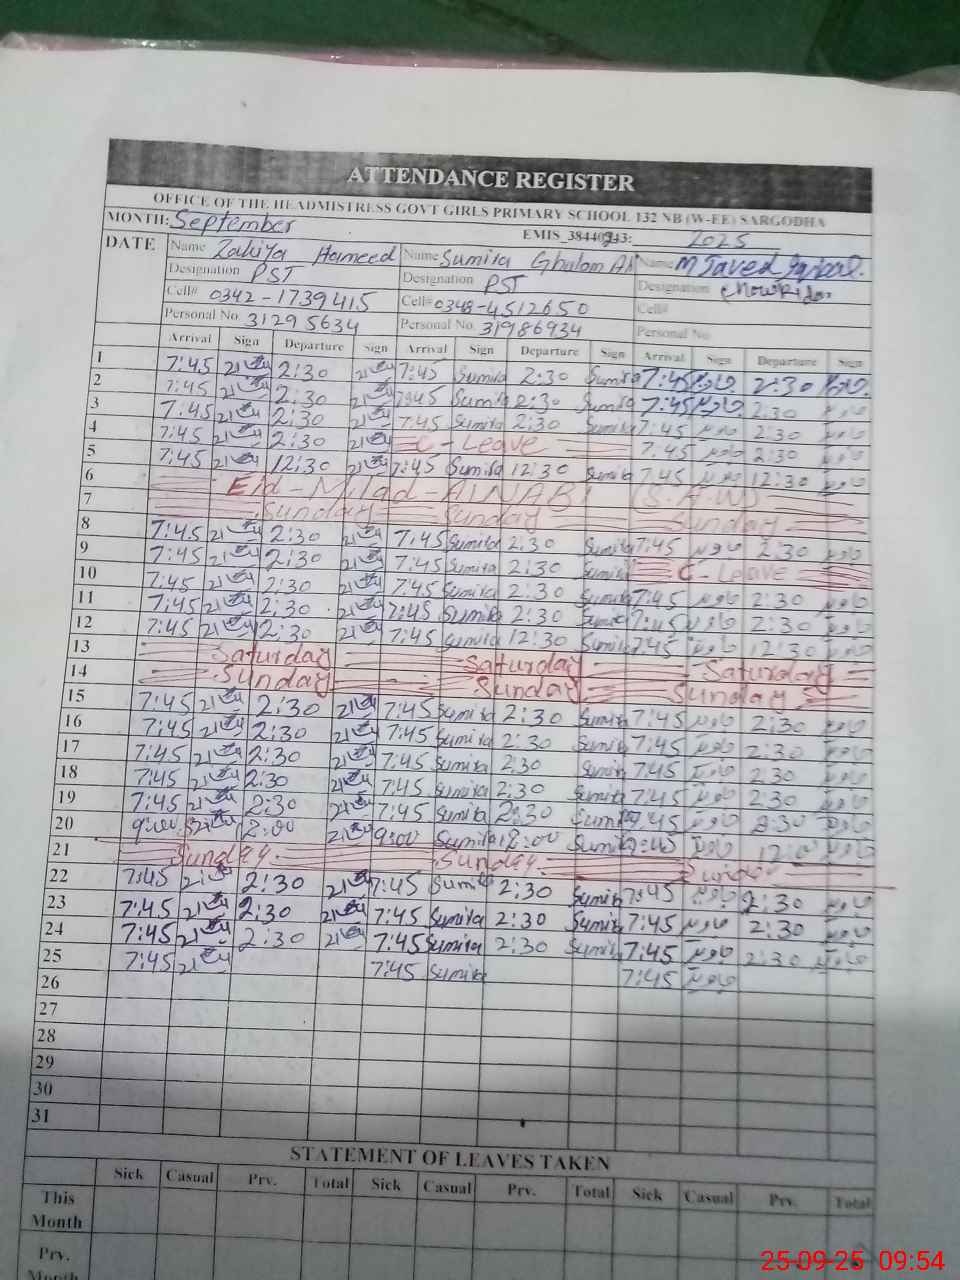 ATTENDANCE REGISTER
OFFICE OF THE HEADMISTRESS GOVT GIRLS PRIMARY SCHOOL 132 NB (W-EE) SARGODHA
MONTH: September EMIS_ 2025
DATE Name Zakiya Hameed Name Sumira Ghulam Name M Javed Iqbal.
Designation PST Designation PST Designation Chowkidar
Cell# 0342-1739415 Cell# 0348-4512650 Cell#
Personal No. 31295634 Personal No. 31986934 Personal No
Arrival Sign Departure Sign Arrival Sign Departure Sign Arrival Sign Departure Sign
1 7:45 2:30 7:45 Sumira 2:30 Sumira 7:45 جاوید 2:30 جاوید
2 7:45 2:30 7:45 Sumira 2:30 Sumira 7:45 جاوید 2:30 جاوید
3 7:45 2:30 7:45 Sumira 2:30 Sumira 7:45 جاوید 2:30 جاوید
4 7:45 2:30 C-Leave 7:45 جاوید 2:30 جاوید
5 7:45 12:30 7:45 Sumira 12:30 Sumira 7:45 جاوید 12:30 جاوید
6 Eid-Milad-AlNABI (S.A.W)
7 Sunday Sunday Sunday
8 7:45 2:30 7:45 Sumira 2:30 Sumira 7:45 جاوید 2:30 جاوید
9 7:45 2:30 7:45 Sumira 2:30 Sumira C-Leave
10 7:45 2:30 7:45 Sumira 2:30 Sumira 7:45 جاوید 2:30 جاوید
11 7:45 2:30 7:45 Sumira 2:30 Sumira 7:45 جاوید 2:30 جاوید
12 7:45 2:30 7:45 Sumira 12:30 Sumira 7:45 جاوید 12:30 جاوید
13 Saturday Saturday Saturday
14 Sunday Sunday Sunday
15 7:45 2:30 7:45 Sumira 2:30 Sumira 7:45 جاوید 2:30 جاوید
16 7:45 2:30 7:45 Sumira 2:30 Sumira 7:45 جاوید 2:30 جاوید
17 7:45 2:30 7:45 Sumira 2:30 Sumira 7:45 جاوید 2:30 جاوید
18 7:45 2:30 7:45 Sumira 2:30 Sumira 7:45 جاوید 2:30 جاوید
19 7:45 2:30 7:45 Sumira 2:30 Sumira 7:45 جاوید 2:30 جاوید
20 9:00 12:00 9:00 Sumira 12:00 Sumira جاوید جاوید
21 Sunday Sunday Sunday
22 7:45 2:30 7:45 Sumira 2:30 Sumira 7:45 جاوید 2:30 جاوید
23 7:45 2:30 7:45 Sumira 2:30 Sumira 7:45 جاوید 2:30 جاوید
24 7:45 2:30 7:45 Sumira 2:30 Sumira 7:45 جاوید 2:30 جاوید
25 7:45 7:45 Sumira 7:45 جاوید
26
27
28
29
30
31
STATEMENT OF LEAVES TAKEN
Sick Casual Prv. Total Sick Casual Prv. Total Sick Casual Prv. Total
This Month
Prv. Month
25-09-25 09:54